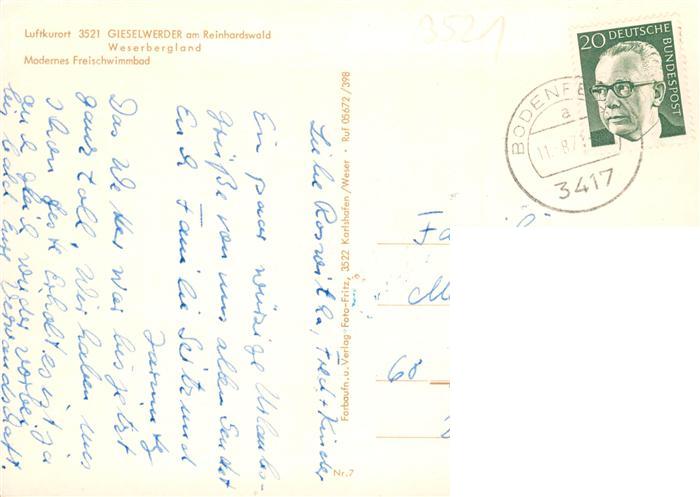 Luftkurort 3521 GIESELWERDER am Reinhardswald
Weserbergland
Modernes Freischwimmbad
3521
20 DEUTSCHE BUNDESPOST
BODENFE
a
11.-8.71
3417
Liebe Roswitha, Fred + Kinder
Ein paar würzige Urlaubs-
grüße von uns allen sendet
Euch Familie Seitz und
Das Wetter war bis jetzt
ganz toll. Wir haben uns
schon gut erholt es ist ja
auch gleich wieder vorbei
bis bald eure Verwandschaft.
Farbaufn. u. Verlag - Foto-Fritz, 3522 Karlshafen/Weser · Ruf 05672/398
Nr. 7
Fa
M
68